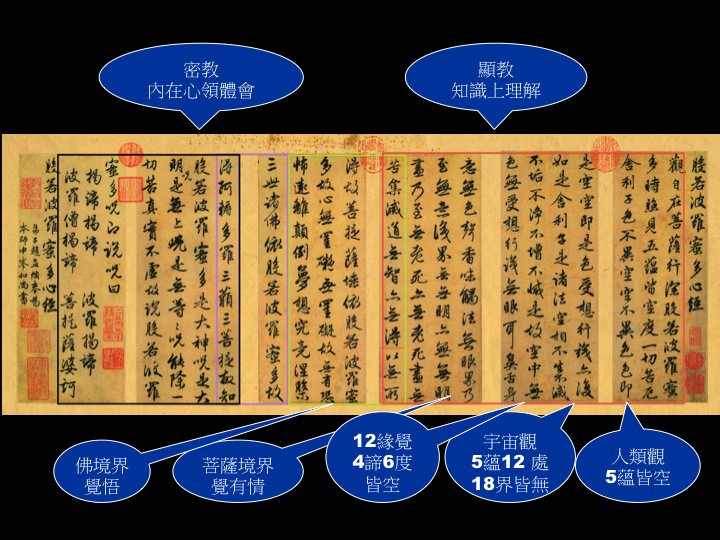 密教
內在心領體會
顯教
知識上理解
般若波羅蜜多心經
觀自在菩薩行深般若波羅蜜
多時照見五蘊皆空度一切苦厄
舍利子色不異空空不異色色即
是空空即是色受想行識亦復
如是舍利子是諸法空相不生不滅
不垢不淨不增不減是故空中無
色無受想行識無眼耳鼻舌身
意無色聲香味觸法無眼界乃
至無意識界無無明亦無無明
盡乃至無老死亦無老死盡無
苦集滅道無智亦無得以無所
得故菩提薩埵依般若波羅蜜
多故心無罣礙無罣礙故無有恐
怖遠離顛倒夢想究竟涅槃
三世諸佛依般若波羅蜜多故
得阿耨多羅三藐三菩提故知
般若波羅蜜多是大神咒是大
明咒是無上咒是無等等咒能除一
切苦真實不虛故說般若波羅
蜜多咒即說咒曰
揭諦揭諦 波羅揭諦
波羅僧揭諦 菩提薩婆訶
般若波羅蜜多心經
弟子趙孟頫奉為
本師中峯和尚書
佛境界
覺悟
菩薩境界
覺有情
12緣覺
4諦6度
皆空
宇宙觀
5蘊12 處
18界皆無
人類觀
5蘊皆空